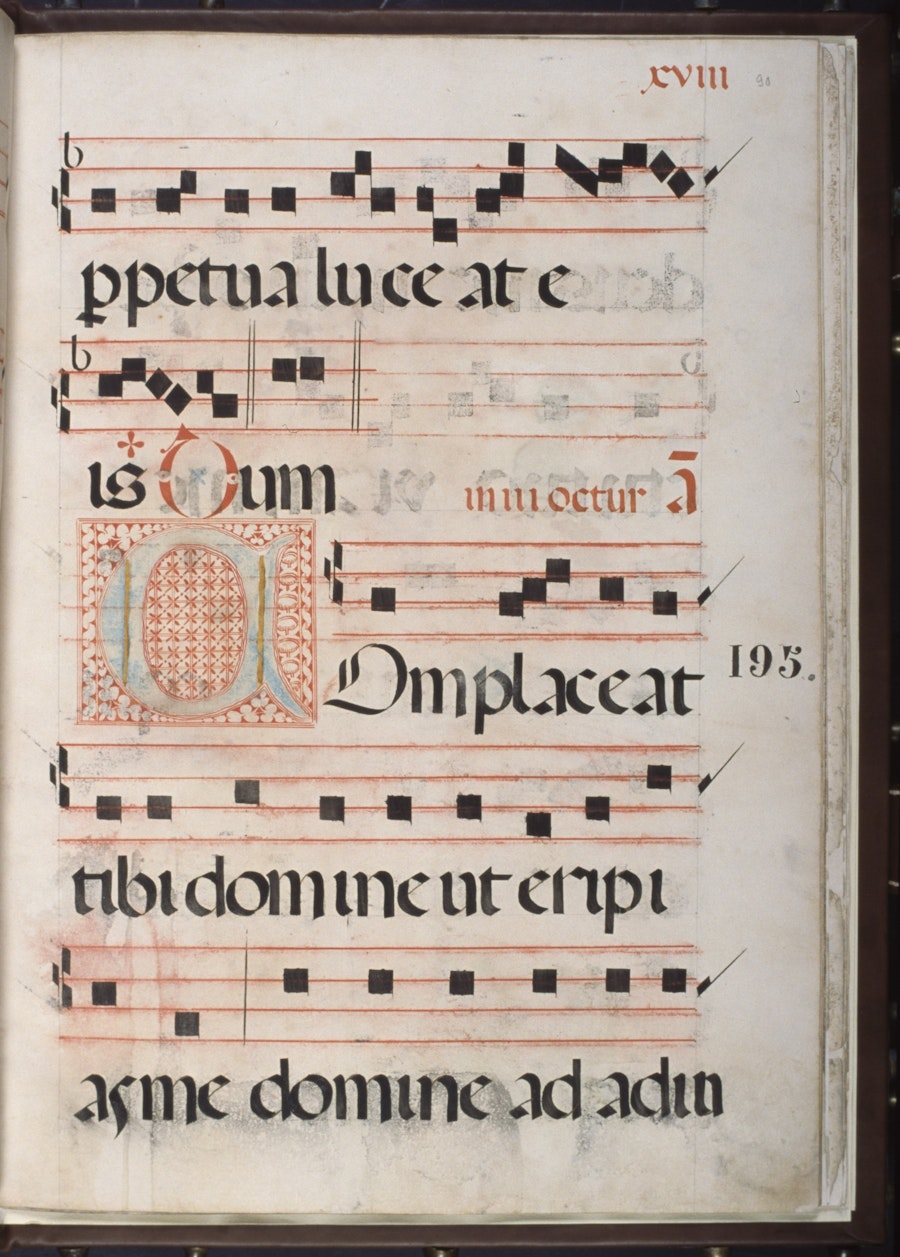 xviii 90
b
ꝑpetua luce at e
b
is * Qum
in iii octur ā
COmplaceat
195.
tibi domine ut eripi
as me domine ad adiu